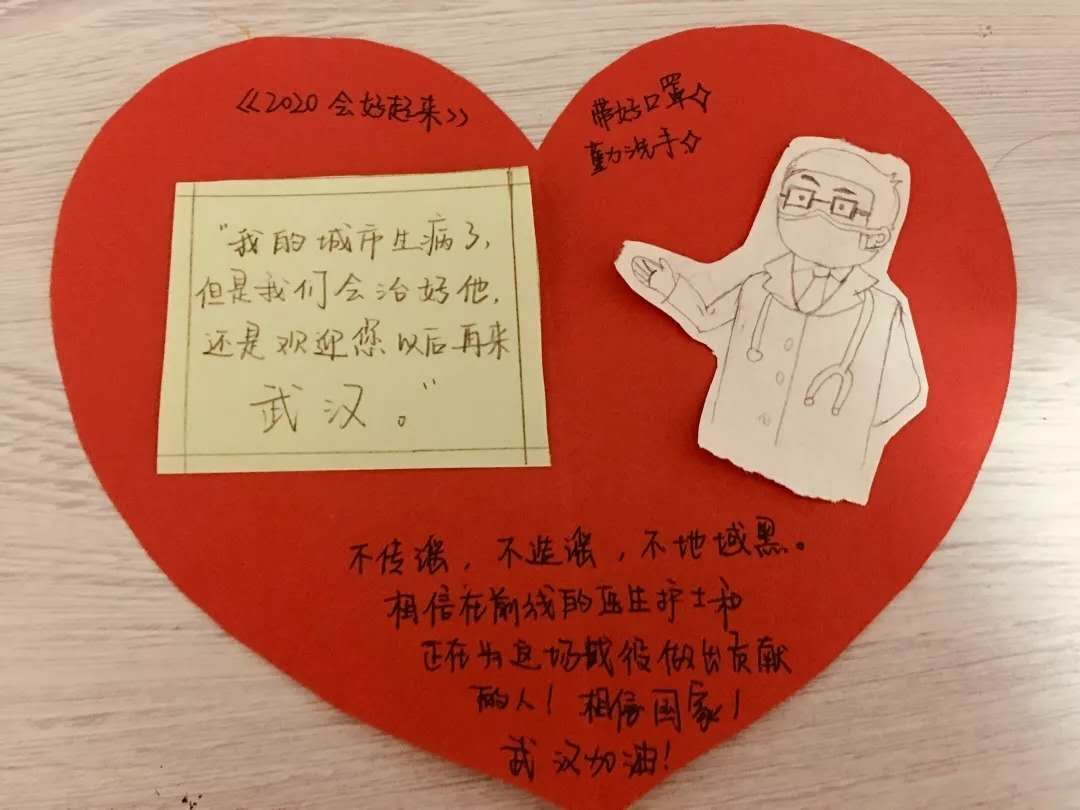 《2020会好起来》
带好口罩✧
勤洗手✧
"我的城市生病了,
但是我们会治好他,
还是欢迎您以后再来
武汉。"
不传谣,不造谣,不地域黑。
相信在前线的医生护士和
正在为这场战役做出贡献
的人!相信国家!
武汉加油!